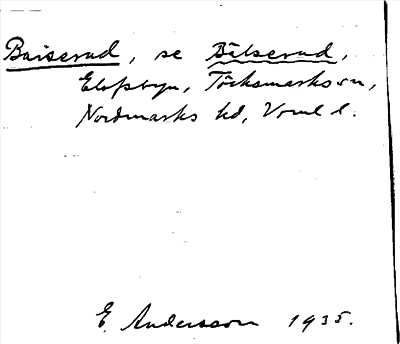 Baiserud, se Bälserud,
Elofsbyn, Töcksmarks sn,
Nordmarks hd, Vrml l.
E. Andersson 1935.